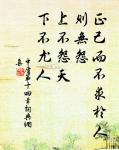 正己而不求於人
則無怨
上不怨天
下不尤人
中庸第十四章詞典網